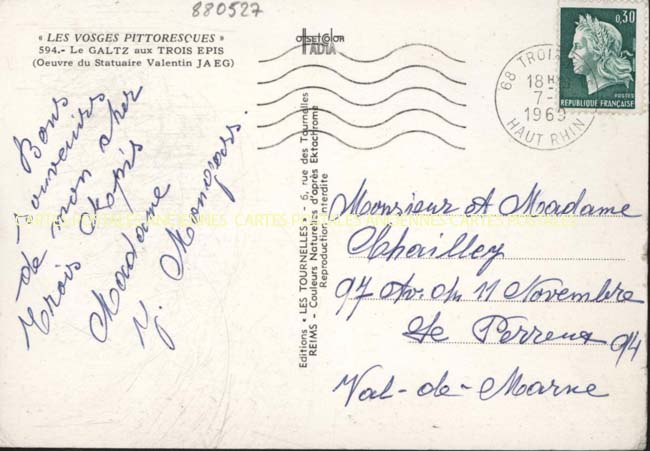 880527
« LES VOSGES PITTORESQUES »
594.- Le GALTZ aux TROIS EPIS
(Oeuvre du Statuaire Valentin JAEG)
offset color
IRIS
0,30
POSTES
REPUBLIQUE FRANÇAISE
68 TROIS
18H
7-
1969
HAUT RHIN
Bons
Souvenirs
de mon cher
Trois Epis
Madame
Y.
Editions « LES TOURNELLES » - 6, rue des Tournelles
REIMS - Couleurs Naturelles d'après Ektachrome
Reproduction interdite
Monsieur et Madame
Chailley
97 Av. du 11 Novembre
Le Perreux 94
Val-de-Marne
CARTES POSTALES ANCIENNES CARTES POSTALES ANCIENNES CARTES POSTALES